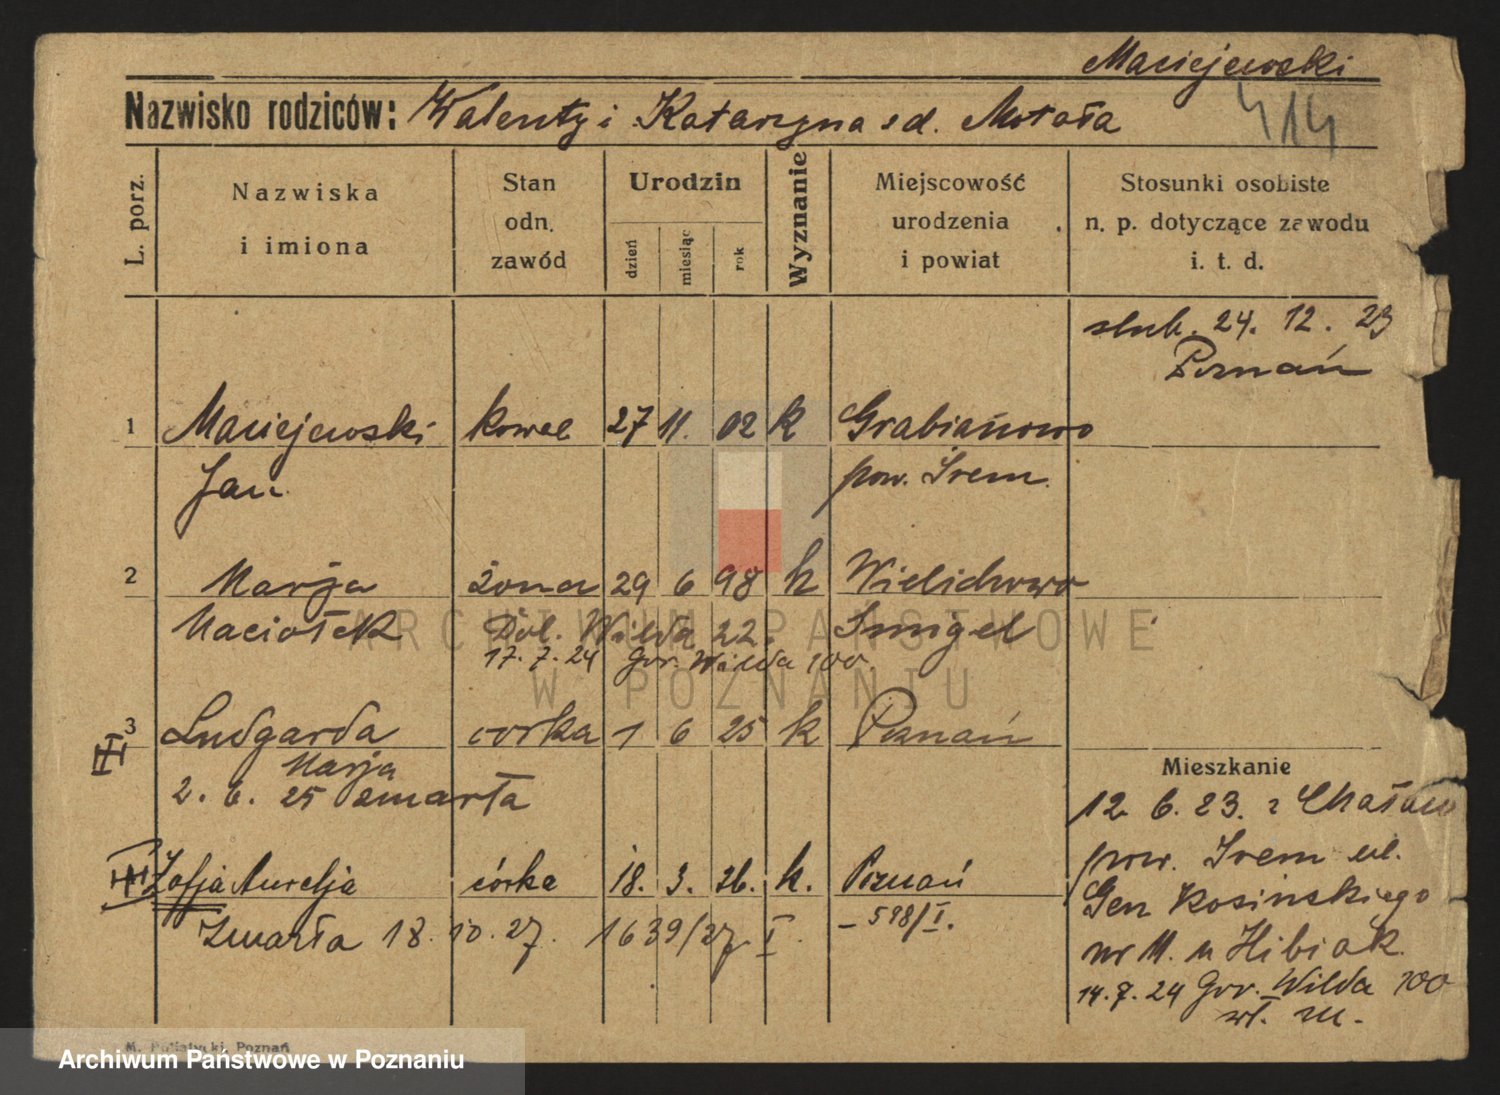 Maciejewski
Nazwisko rodziców: Walenty i Katarzyna z d. Motała
414
L. porz.
Nazwiska
i imiona
Stan
odn.
zawód
Urodzin
dzień
miesiąc
rok
Wyznanie
Miejscowość
urodzenia
i powiat
Stosunki osobiste
n. p. dotyczące zawodu
i. t. d.
slub. 24. 12. 23
Poznań
1 Maciejewski kowal 27 11. 02 k Grabianowo
Jan pow. Śrem.
2 Marja żona 29 6 98 k Wielichowo
Maciołek Dol. Wilda 22. Śmigel
17. 7. 24 Gor. Wilda 100.
3 Ludgarda córka 1 6 25 k Poznań
Marja
2. 6. 25 zmarła
Zofja Aurelja córka 18. 3. 26. k. Poznań
Zmarła 18. 10. 27. 1639/27. I. – 598/I.
Mieszkanie
12. 6. 23. z
pow. Śrem ul.
Gen Kosinskiego
nr 11. u Hibiak.
14. 7. 24 Gor. Wilda 100
wł. m.
M. Putiatycki, Poznań
ARCHIWUM PAŃSTWOWE
W POZNANIU
Archiwum Państwowe w Poznaniu